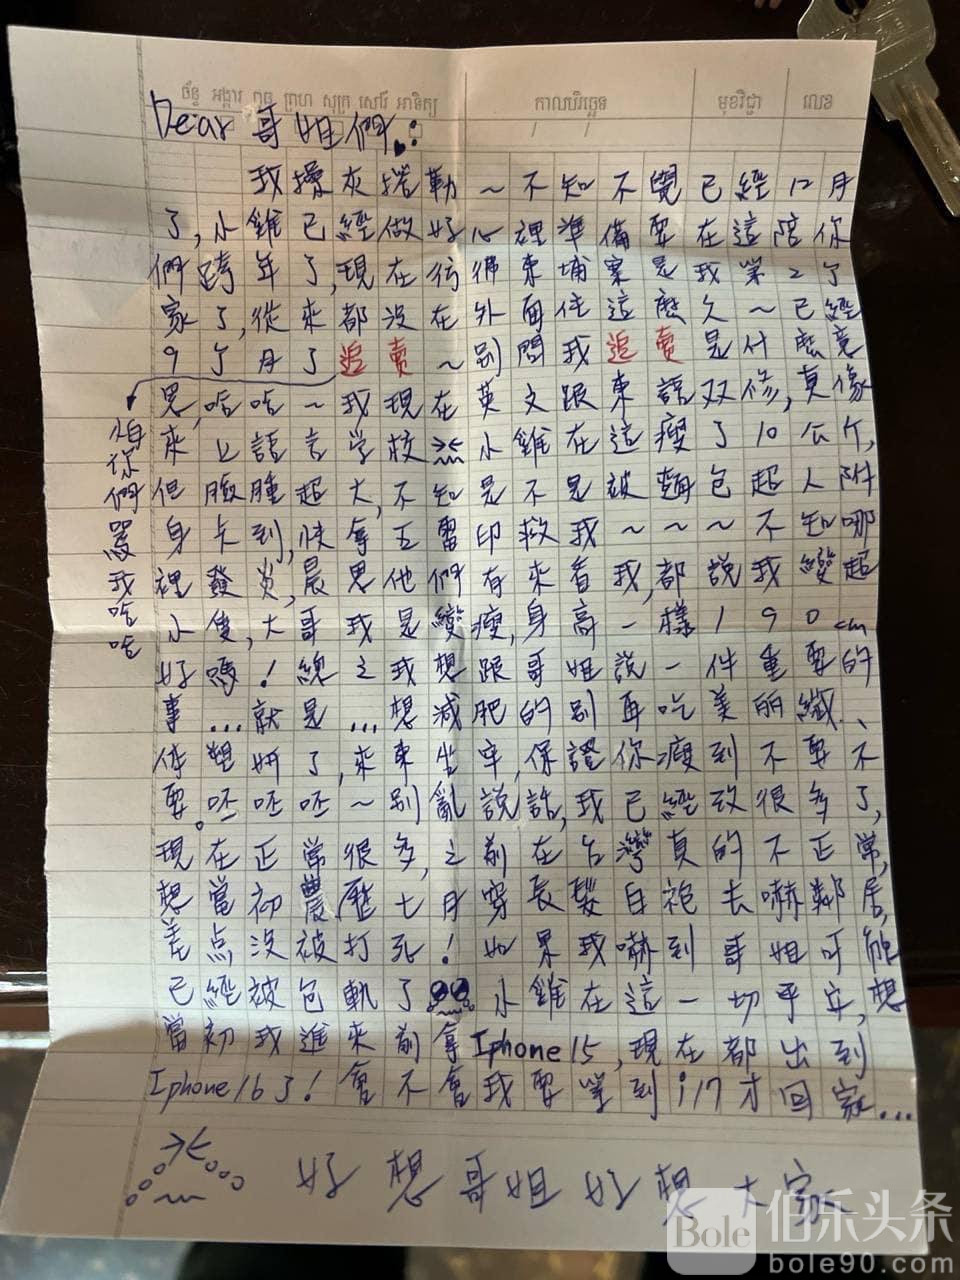 ច័ន្ទ អង្គារ ពុធ ព្រហ សុក្រ សៅរ៍ អាទិត្យ កាលបរិច្ឆេទ មុខវិជ្ជា លេខ
Dear 哥姐們:
我操灰捲勒~不知不覺已經12月
了,小雞已經做好心裡準備要在這陪你
們跨年了,現在彷彿柬埔寨是我第2个
家了,從來都沒在外面住這麼久~已經
9个月了追賣~別問我追賣是什麼意
思,哈哈~我現在英文跟柬語双修,真像
來上語言学校 小雞在這瘦了10公斤,
但臉腫超大,不知是不是被麵包超人附
身卡到,快拿五雷印救我~~~不知哪
裡發炎,晨思他們有來看我,都說我變超
小隻,大哥我是變瘦,身高一樣190cm
好嗎!總之我想跟哥姐說一件重要的
事...就是...想減肥的別再吃美丽纖、
倖塑妍了,來柬坐牢,保證你瘦到不要不
要。呸呸呸~別亂說話,我已經改很多了,
現在正常很多,之前在台灣真的不正常,
想當初農歷七月穿長髮白袍去嚇鄰居,
差点沒被打死!如果我嚇到哥姐可能
已經被包軌了 小雞在這一切平安,想
當初我進來前拿Iphone15,現在都出到
Iphone16了!會不會我要等到i17才回家...
怕你們罵我哈哈
想哥姐 想大家
Bole 伯乐头条
bole90.com